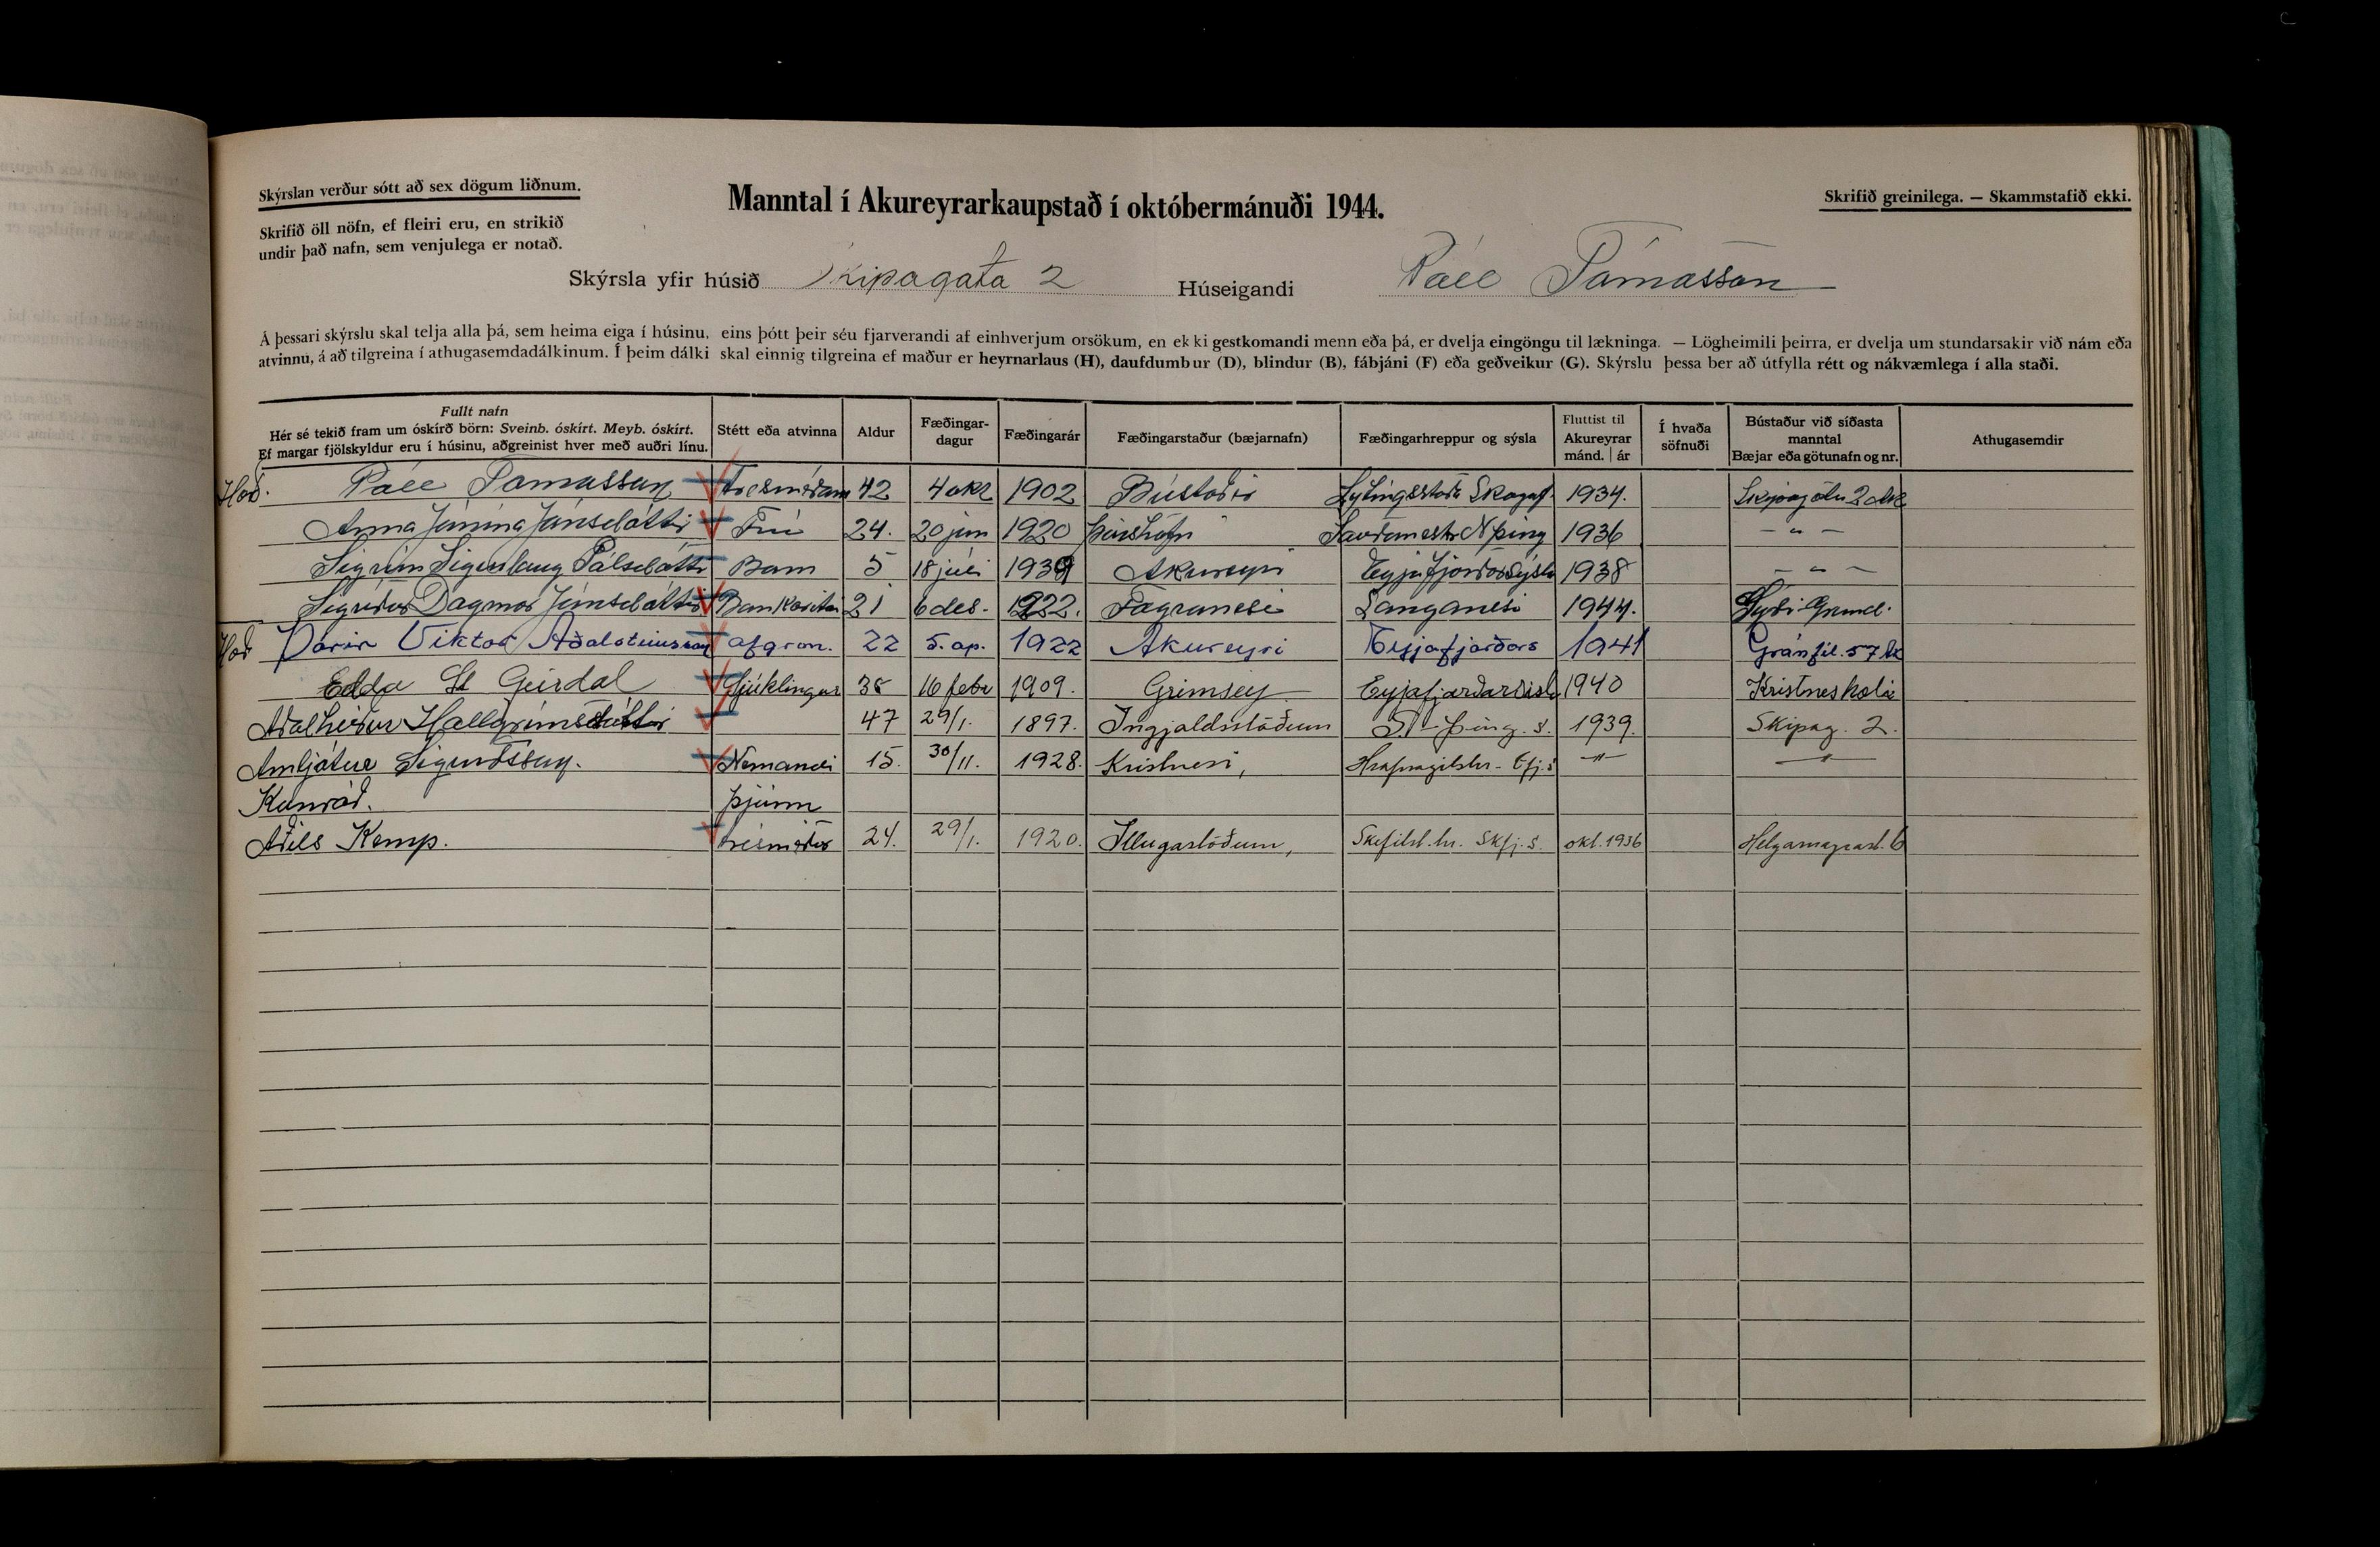 Skýrslan verður sótt að sex dögum liðnum.
Skrifið öll nöfn, ef fleiri eru, en strikið
undir það nafn, sem venjulega er notað.
Manntal í Akureyrarkaupstað í októbermánuði 1944.
Skrifið greinilega. — Skammstafið ekki.
Skýrsla yfir húsið Skipagata 2 Húseigandi Páll Tómasson
Á þessari skýrslu skal telja alla þá, sem heima eiga í húsinu, eins þótt þeir séu fjarverandi af einhverjum orsökum, en ekki gestkomandi menn eða þá, er dvelja eingöngu til lækninga. — Lögheimili þeirra, er dvelja um stundarsakir við nám eða
atvinnu, á að tilgreina í athugasemdadálkinum. Í þeim dálki skal einnig tilgreina ef maður er heyrnarlaus (H), daufdumbur (D), blindur (B), fábjáni (F) eða geðveikur (G). Skýrslu þessa ber að útfylla rétt og nákvæmlega í alla staði.
Fullt nafn
Hér sé tekið fram um óskírð börn: Sveinb. óskírt. Meyb. óskírt.
Ef margar fjölskyldur eru í húsinu, aðgreinist hver með auðri línu.
Stétt eða atvinna
Aldur
Fæðingar-
dagur
Fæðingarár
Fæðingarstaður (bæjarnafn)
Fæðingarhreppur og sýsla
Fluttist til
Akureyrar
mánd. | ár
Í hvaða
söfnuði
Bústaður við síðasta
manntal
Bæjar eða götunafn og nr.
Athugasemdir
Páll Tómasson 42 4 okt 1902 Bústaðir Skagaf. 1934. 2 Ak
Anna Jónína Jónsdóttir Frú 24. 20 jún 1920 Þórshöfn N Þing 1936 - " -
Sigrún Sigurlaug Pálsdóttir Barn 5 18 júlí 1939 Akureyri Eyjafjarðarsýsla 1938 - " -
Sigríður Dagmar Jónsdóttir 21 6 des. 1922. Fagranesi Langanesi 1944.
Viktor Aðalsteinsson afgrm. 22 5. ap. 1922 Akureyri Eyjafjarðars 1941 Gránfél. 57 Ak
Edda St Geirdal Sjúklingur 35 16 febr 1909. Grímsey 1940 Kristneshæli
Aðalheiður Hallgrímsdóttir 47 29/1. 1897. Ingjaldsstöðum S-Þing. s. 1939. Skipag. 2.
Arnljótur Sigurðsson. Nemandi 15. 30/11. 1928. Kristnesi, Hrafnagilshr. Efj.s - " - - " -
Konráð. Þjónn
Aðils Kemp. trésmiður 24. 29/1. 1920. Illugastöðum, Skefilst.hr. Skfj.s. okt. 1936 Helgamagrast. 6